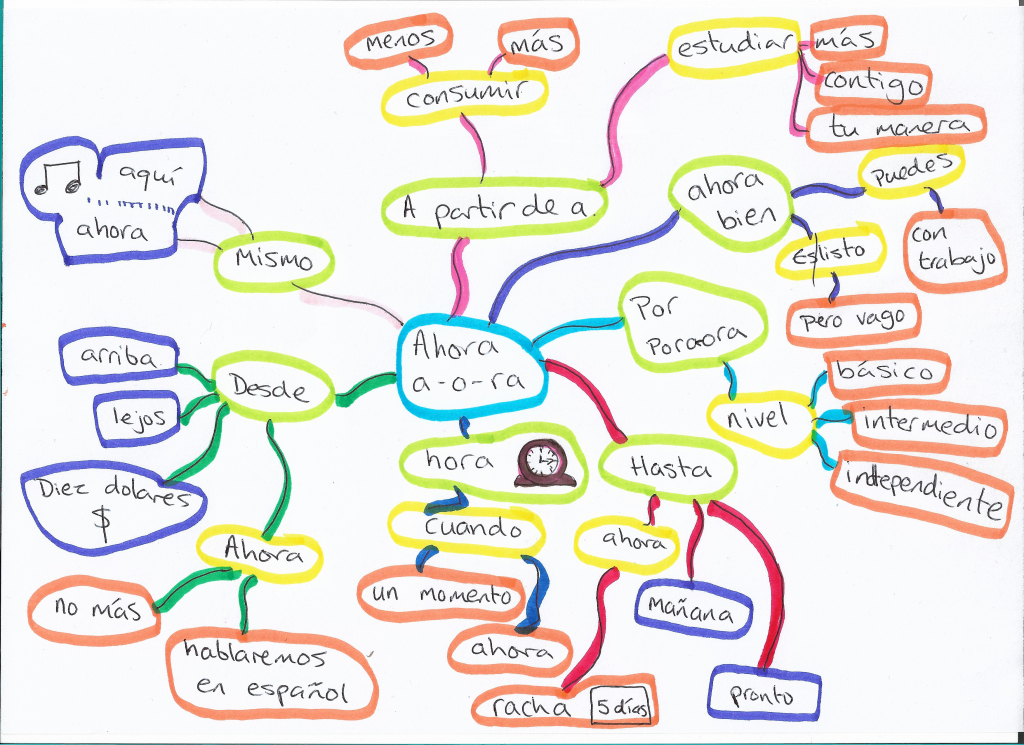 menos
más
consumir
estudiar
más
contigo
tu manera
A partir de a.
ahora
bien
Puedes
con
trabajo
Es listo
pero vago
aquí
ahora
Mismo
Ahora
a-o-ra
Por
nivel
básico
intermedio
independiente
Desde
arriba
lejos
Diez dolares
$
Ahora
no más
hablaremos
en español
hora
cuando
un momento
ahora
Hasta
ahora
racha 5 días
mañana
pronto